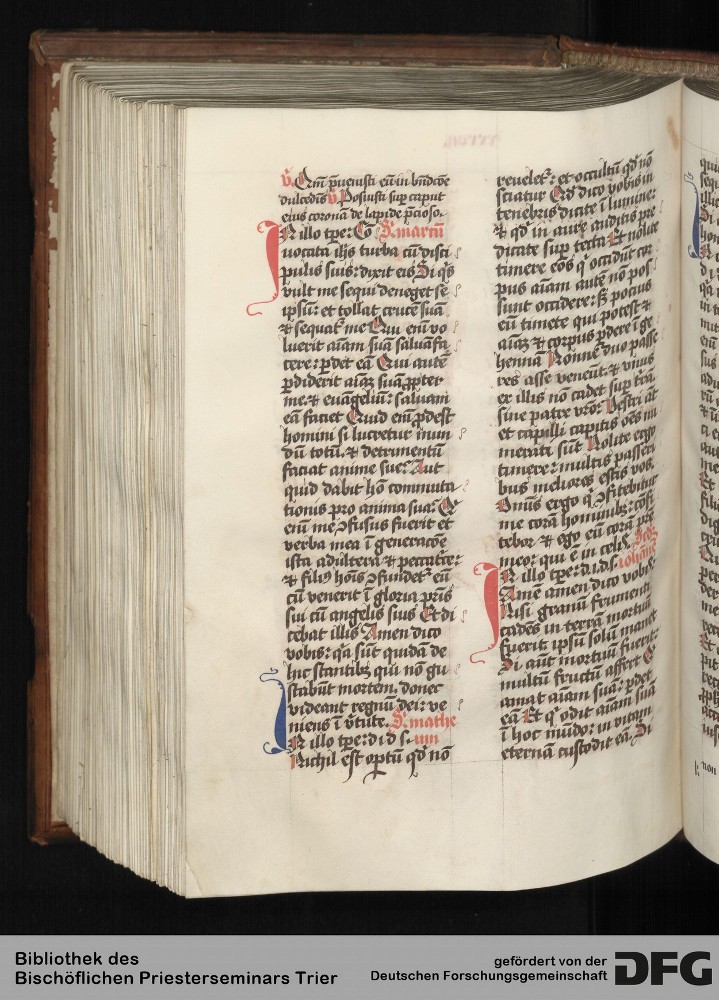 V. Qm̄ p̄uenisti eū in bn̄dcōe
dulcedīs V. Posuisti sup caput
eius coronā de lapide p̄cioso.
IN illo tp̄e: Cō S. marcū
uocata ih̄s turba cū disci
pulis suis: dixit eis Si q̄s
vult me sequi deneget se
ipsū: et tollat crucē suā
⁊ sequat᷑ me Qui em̄ vo
luerit aīam suā saluā fa
cere: p̱det eā Qui autē
p̱diderit aīaꝫ suā ꝓpter
me ⁊ euāgeliū: saluam
eā faciet Quid em̄ ꝓdest
homini si lucretur mun
dū totū: ⁊ detrimentū
faciat anime sue: Aut
quid dabit hō commuta
tionis pro anima sua: Q
enī me ↄfusus fuerit et
verba mea ī generacōe
ista adultera ⁊ peccatͥce:
⁊ filiꝰ hoīs ↄfundet᷑ eū
cū venerit ī gloria pr̄is
sui cū angelis suis Et di
cebat illis Amen dico
vobis: qa sūt quidā de
hic stantibꝫ qui nō gu
stabūt mortem. donec
videant regnū dei: ve
niens ī v̄tute. S. mathe
IN illo tp̄e: d. i. d. s. um
Nichil est op̄tū qd̄ nō
reuelet᷑: et occultū qd̄ nō
sciatur Qd̄ dico vobis in
tenebris dicite ī lumine:
⁊ qd̄ in aure auditis pre
dicate sup tecta Et nolite
timere eos q̄ occidūt cor
pus aīam autē nō pos
sunt occidere: sꝫ pocius
eū timete qui potest ⁊
aīaꝫ ⁊ corpus p̱dere ī ge
hennā Nonne duo passe
res asse veneūt: ⁊ vnus
ex illis nō cadet sup t̄rā
sine patre vr̄o: Vestri aūt
et capilli capitis oēs nu
merati sūt Nolite ergo
timere: multis passeri
bus meliores estis vos.
Omīs ergo q̄ ↄfitebitur
me corā hominibꝫ: ↄfi
tebor ⁊ ego eū corā pr̄e
meo: qui ē in celis. Scd̄ꝫ
IN illo tp̄e: d. i. d. s. iohānē
Amē amen dico vobis.
Nisi granū frumenti
cadēs in terrā mortuū
fuerit ipsū solū manet
Si aūt mortuū fuerit:
multū fructū affert Q
amat aīam suā: p̱det
eā Et q̄ odit aīam suā
ī hoc mūdo: in vitam
eternā custodit eā. Si
Bibliothek des
Bischöflichen Priesterseminars Trier
gefördert von der
Deutschen Forschungsgemeinschaft
DFG